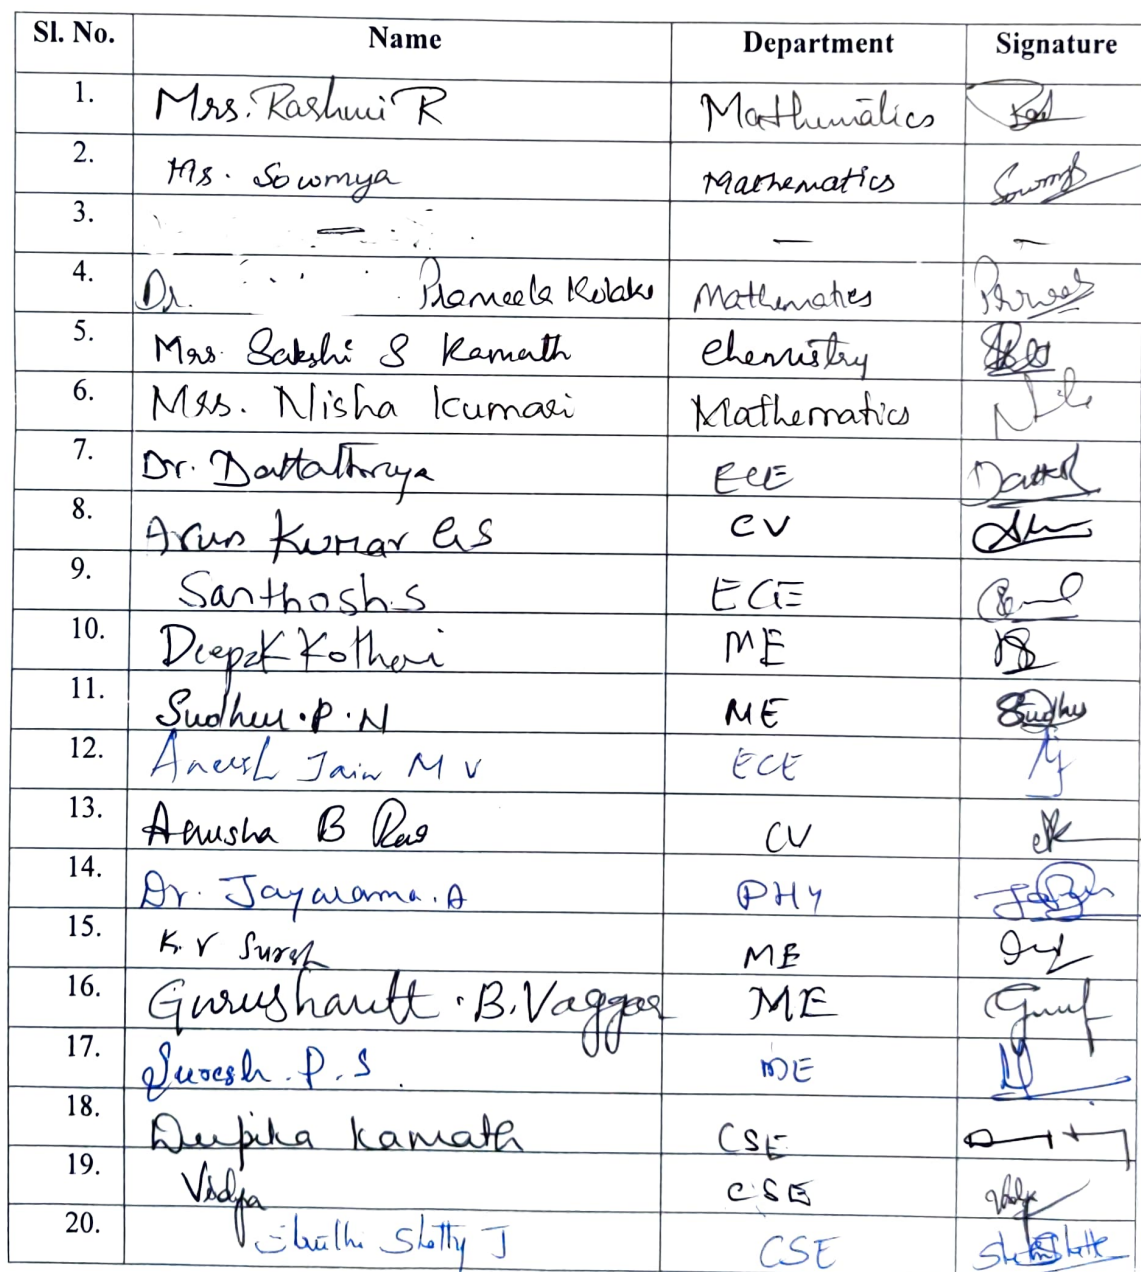 Sl. No. Name Department Signature
1. Mrs. Rashmi R Mathematics
2. Ms. Sowmya Mathematics Sowmya
3. — — —
4. Dr. Prameela Kolake Mathematics
5. Mrs. Sakshi S Kamath Chemistry
6. Mrs. Nisha Kumari Mathematics
7. Dr. Dattathreya ECE
8. Arun Kumar G S CV
9. Santhosh.S ECE
10. Deepak Kothari ME
11. Sudheer.P.N ME
12. Aneesh Jain M V ECE
13. Anusha B Rao CV
14. Dr. Jayarama.A PHY
15. K. V Suresh ME
16. Gurushantt.B.Vaggar ME
17. Suresh.P.S ME
18. Deepika Kamath CSE
19. Vidya CSE Vidya
20. Shetty J CSE